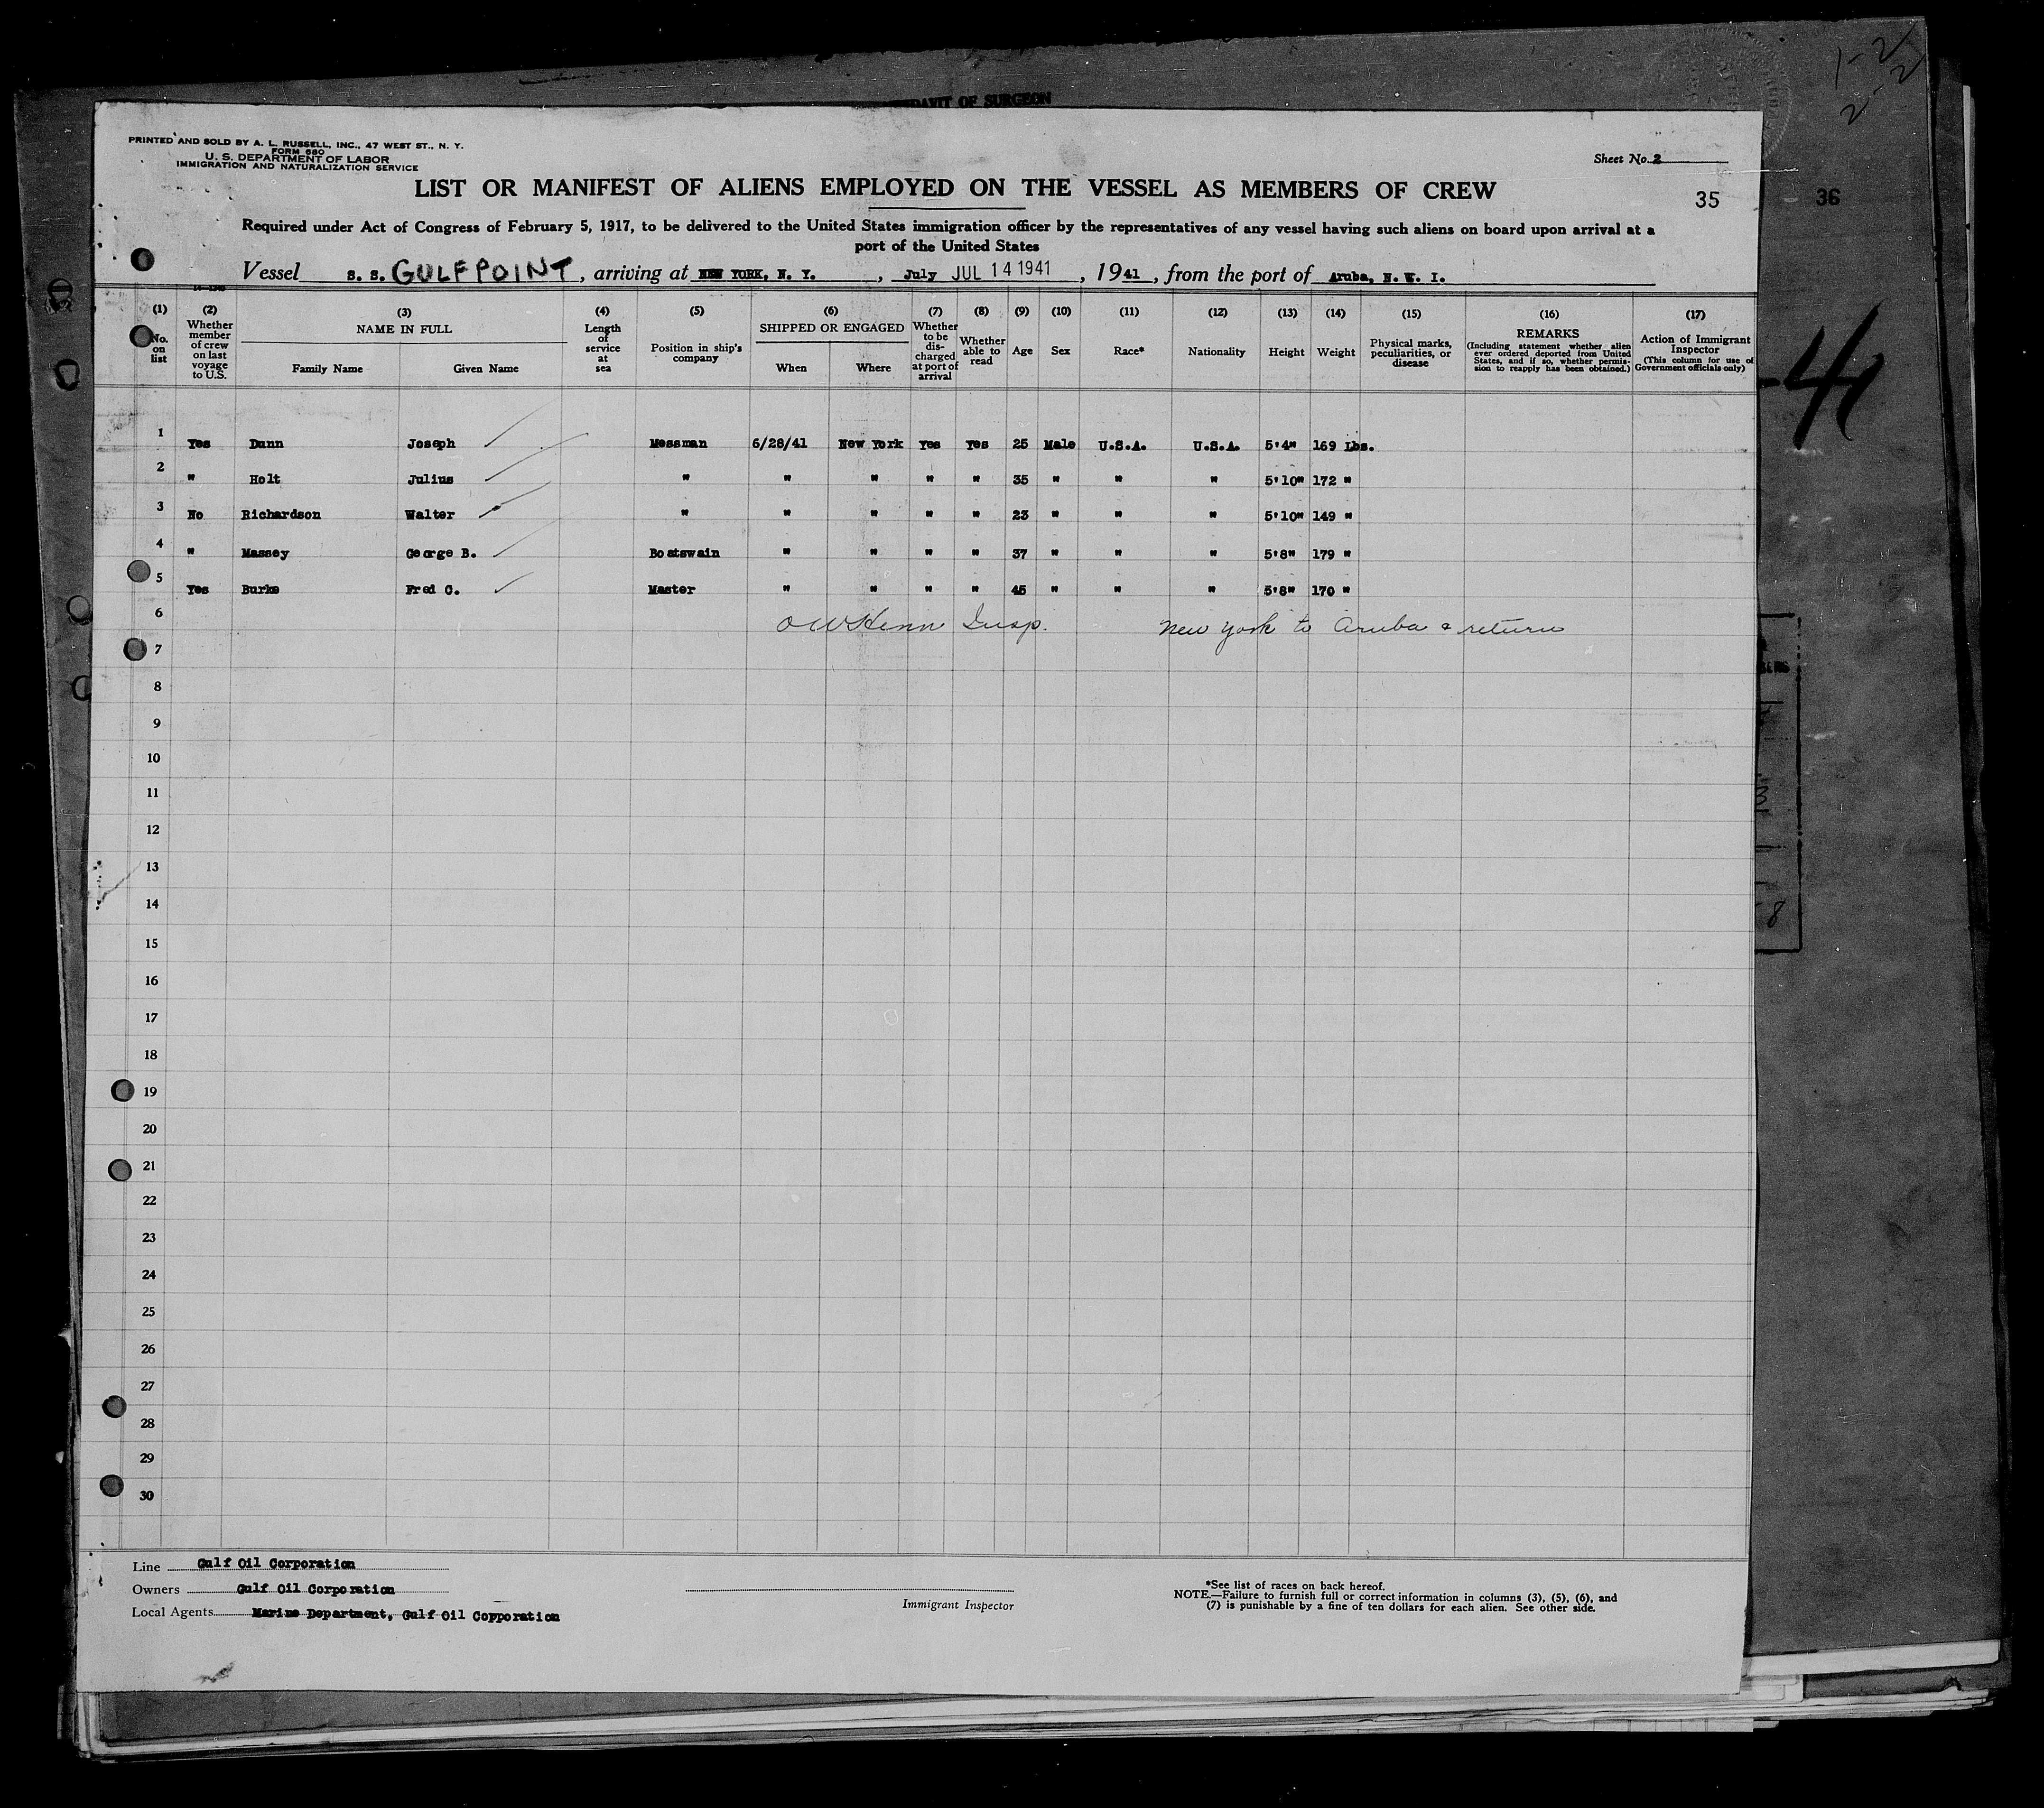 AVIT OF SURGEON
1-2
2-2
PRINTED AND SOLD BY A. L. RUSSELL, INC., 47 WEST ST., N. Y.
FORM 680
U. S. DEPARTMENT OF LABOR
IMMIGRATION AND NATURALIZATION SERVICE
Sheet No. 2
LIST OR MANIFEST OF ALIENS EMPLOYED ON THE VESSEL AS MEMBERS OF CREW
35
36
Required under Act of Congress of February 5, 1917, to be delivered to the United States immigration officer by the representatives of any vessel having such aliens on board upon arrival at a
port of the United States
Vessel S. S. GULFPOINT, arriving at NEW YORK, N. Y., July JUL 14 1941, 1941, from the port of Aruba, N. W. I.
(1) No. on list
(2) Whether member of crew on last voyage to U.S.
(3) NAME IN FULL Family Name Given Name
(4) Length of service at sea
(5) Position in ship's company
(6) SHIPPED OR ENGAGED When Where
(7) Whether to be discharged at port of arrival
(8) Whether able to read
(9) Age
(10) Sex
(11) Race*
(12) Nationality
(13) Height
(14) Weight
(15) Physical marks, peculiarities, or disease
(16) REMARKS (Including statement whether alien ever ordered deported from United States, and if so, whether permission to reapply has been obtained.)
(17) Action of Immigrant Inspector (This column for use of Government officials only)
1 Yes Dunn Joseph Messman 6/28/41 New York Yes Yes 25 Male U.S.A. U.S.A. 5'4" 169 Lbs.
2 " Holt Julius " " " " " 35 " " " 5'10" 172 "
3 No Richardson Walter " " " " " 23 " " " 5'10" 149 "
4 " Massey George B. Boatswain " " " " 37 " " " 5'8" 179 "
5 Yes Burke Fred C. Master " " " " 45 " " " 5'8" 170 "
6 OW Henn Insp. New York to Aruba & return
7
8
9
10
11
12
13
14
15
16
17
18
19
20
21
22
23
24
25
26
27
28
29
30
Line Gulf Oil Corporation
Owners Gulf Oil Corporation
Local Agents Marine Department, Gulf Oil Copporation
Immigrant Inspector
*See list of races on back hereof.
NOTE.—Failure to furnish full or correct information in columns (3), (5), (6), and
(7) is punishable by a fine of ten dollars for each alien. See other side.